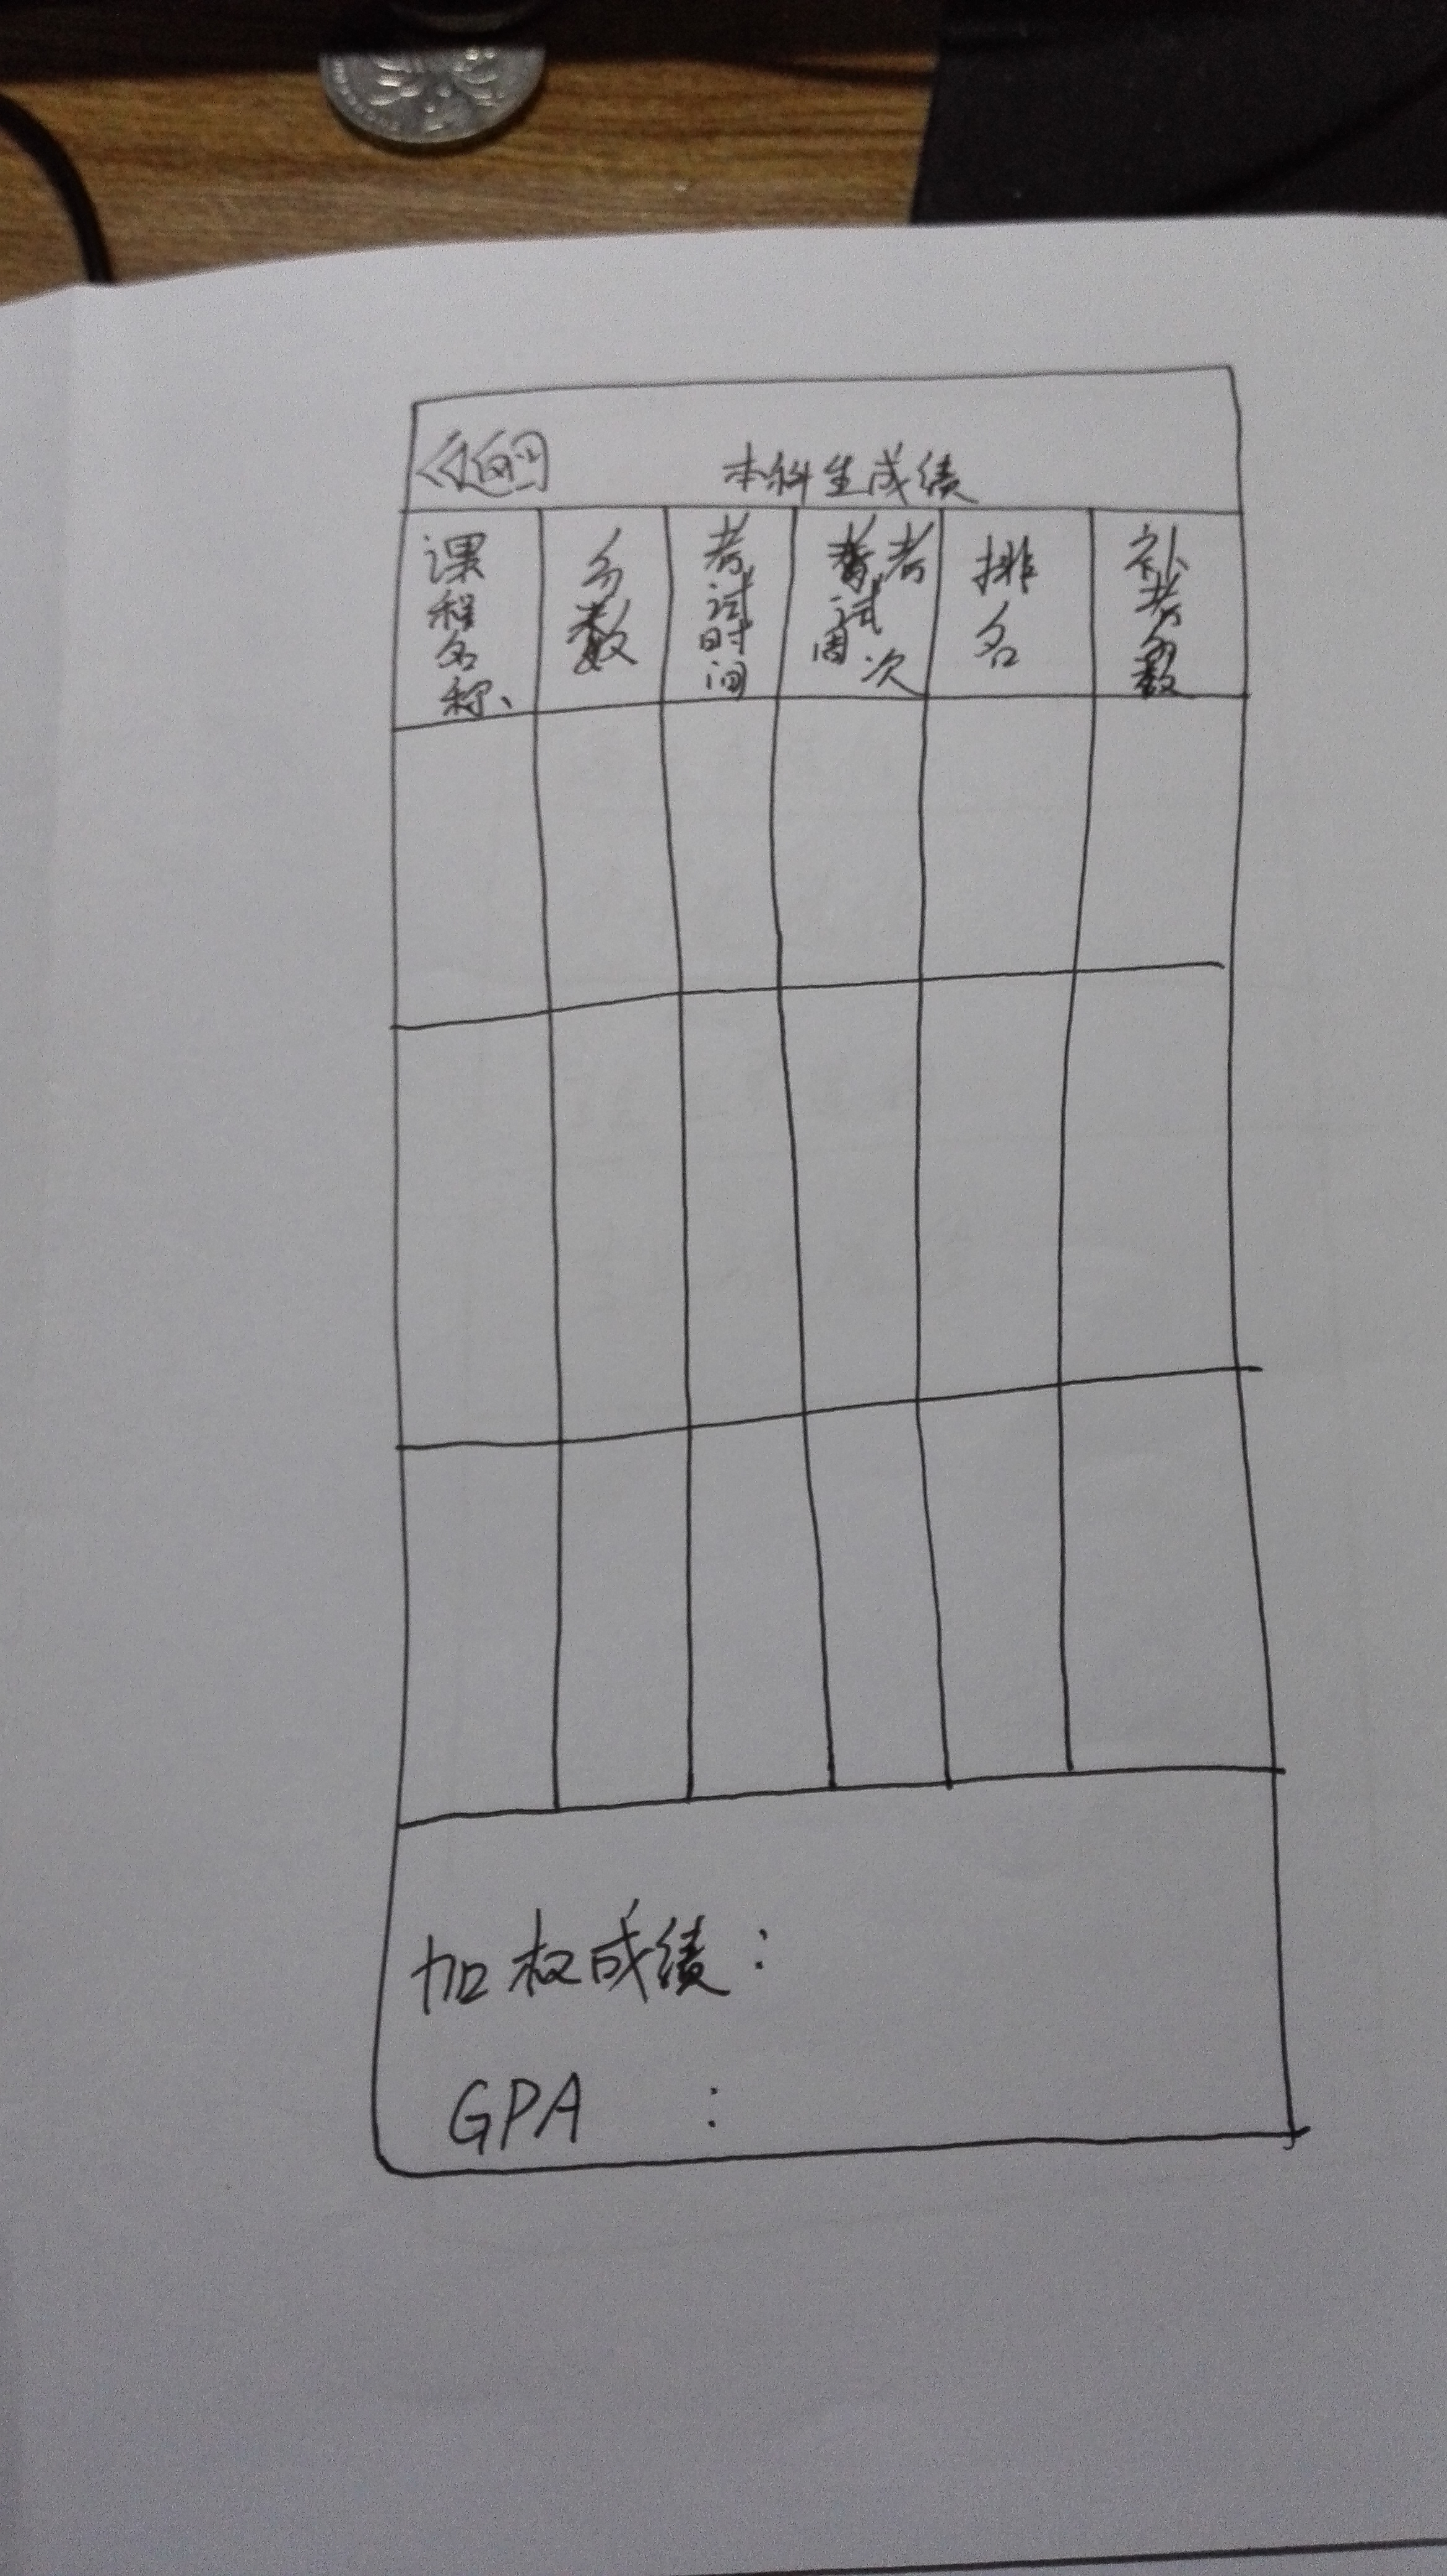 返回
本科生成绩
课程名称、
分数
考试时间
考试周次
排名
补考分数
加权成绩：
GPA ：